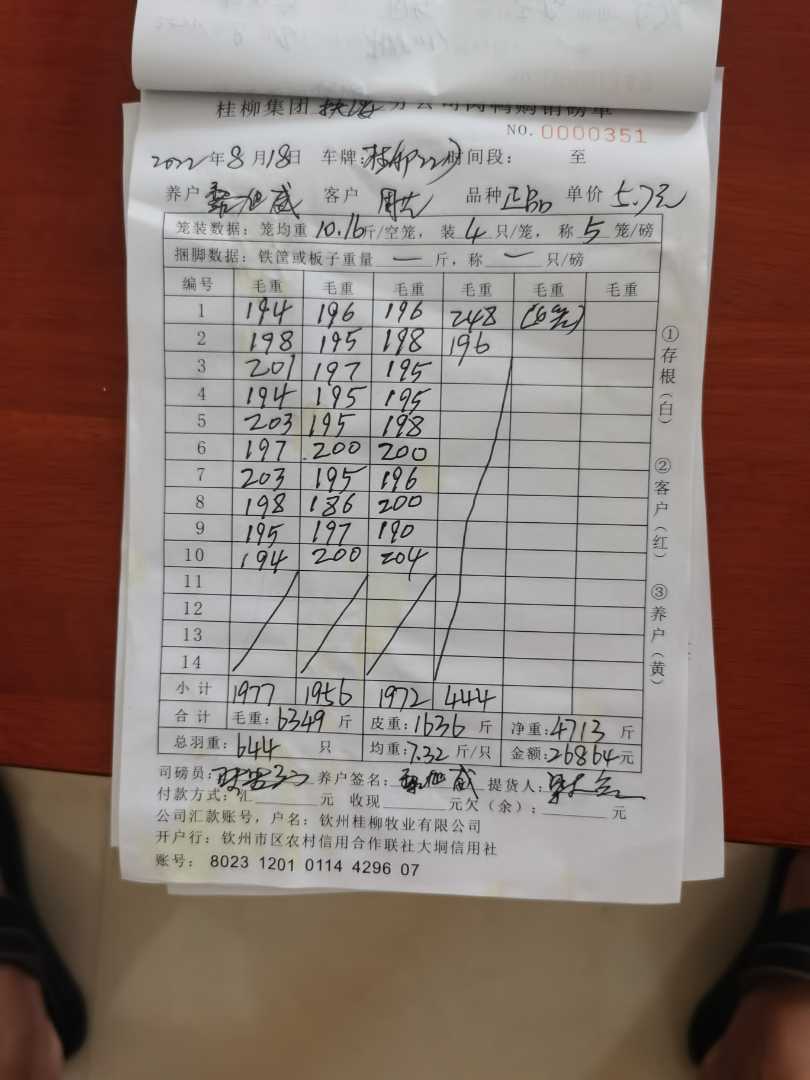 桂柳集团 扶绥 分公司肉鸭购销磅单
NO. 0000351
2022年8月18日 车牌: 时间段: 至
养户 威 客户 品种 正品 单价 5.7元
笼装数据: 笼均重 10.16 斤/空笼, 装 4 只/笼, 称 5 笼/磅
捆脚数据: 铁筐或板子重量 — 斤, 称 — 只/磅
编号 毛重 毛重 毛重 毛重 毛重 毛重
1 194 196 196 248 (6笼)
2 198 195 198 196
3 201 197 195
4 194 195 195
5 203 195 198
6 197 200 200
7 203 195 196
8 198 186 200
9 195 197 190
10 194 200 204
11
12
13
14
小计 1977 1956 1972 444
合计 毛重: 6349 斤 皮重: 1636 斤 净重: 4713 斤
总羽重: 644 只 均重: 7.32 斤/只 金额: 26864 元
司磅员: 养户签名: 威 提货人:
付款方式: 汇 元 收现 元欠(余): 元
公司汇款账号, 户名: 钦州桂柳牧业有限公司
开户行: 钦州市区农村信用合作联社大垌信用社
账号: 8023 1201 0114 4296 07
①存根(白) ②客户(红) ③养户(黄)